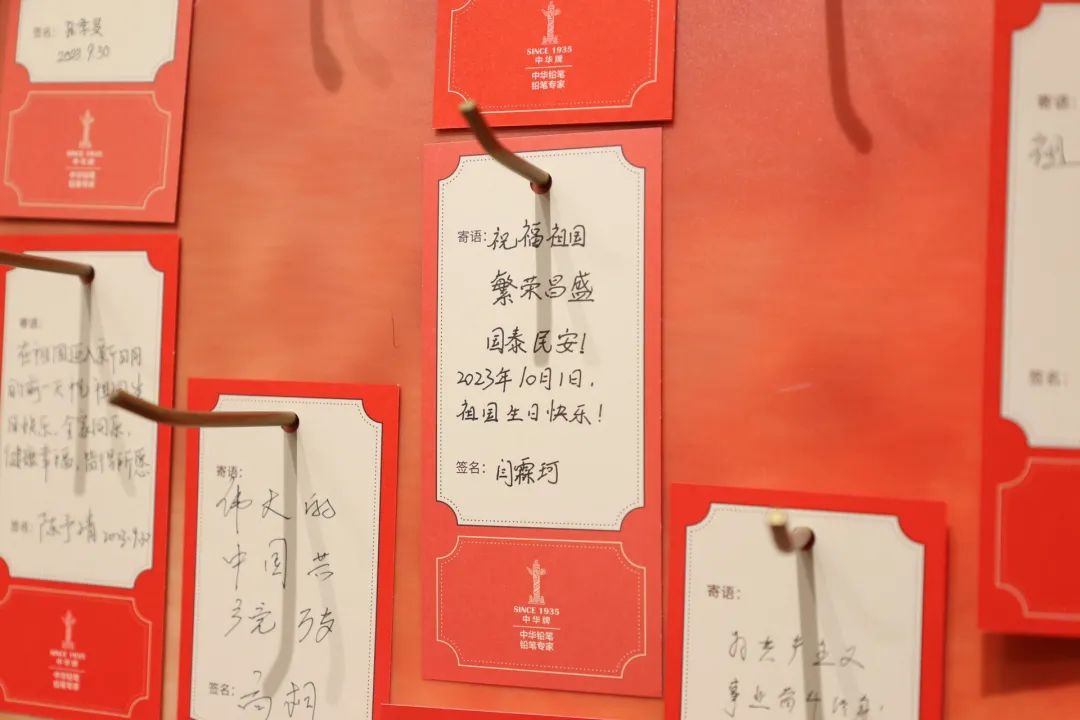 签名:
2023 9.30
SINCE 1935
中华牌
中华铅笔
铅笔专家
SINCE 1935
中华牌
中华铅笔
铅笔专家
寄语:
在祖国
的前一天
快乐,
健康幸福,
签名: 陈
SINCE 1935
中华牌
中华铅笔
铅笔专家
寄语:
伟大的
中国共
产党万岁
签名:
寄语: 祝福祖国
繁荣昌盛
国泰民安!
2023年10月1日,
祖国生日快乐!
签名: 闫霖珂
SINCE 1935
中华牌
中华铅笔
铅笔专家
寄语:
为共产主义
事业奋斗终身,
寄语:
祝
签名: